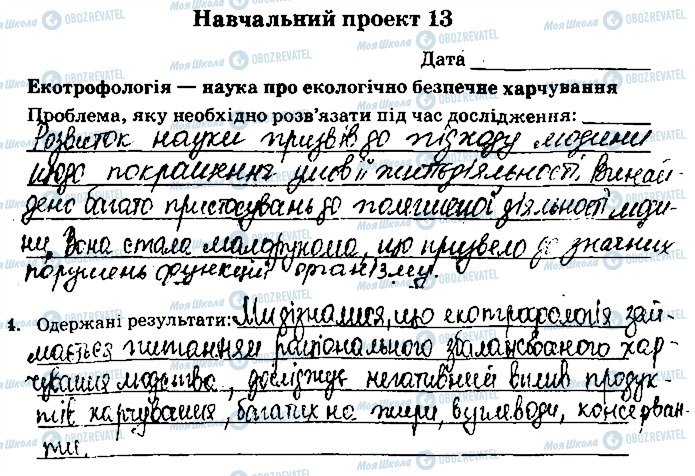 Навчальний проект 13
Дата
Екотрофологія — наука про екологічно безпечне харчування
Проблема, яку необхідно розв'язати під час дослідження:
Розвиток науки призвів до підходу людини
щодо покращення умов її життєдіяльності. Винай-
дено багато пристосувань до полегшеної діяльності люди-
ни. Вона стала малорухома, що призвело до значних
порушень функцій організму.
1. Одержані результати: Ми дізналися, що екотрофологія зай-
мається питанням раціонального збалансованого хар-
чування людства, досліджує негативний вплив продук-
тів харчування, багатих на жири, вуглеводи, консерван-
ти.